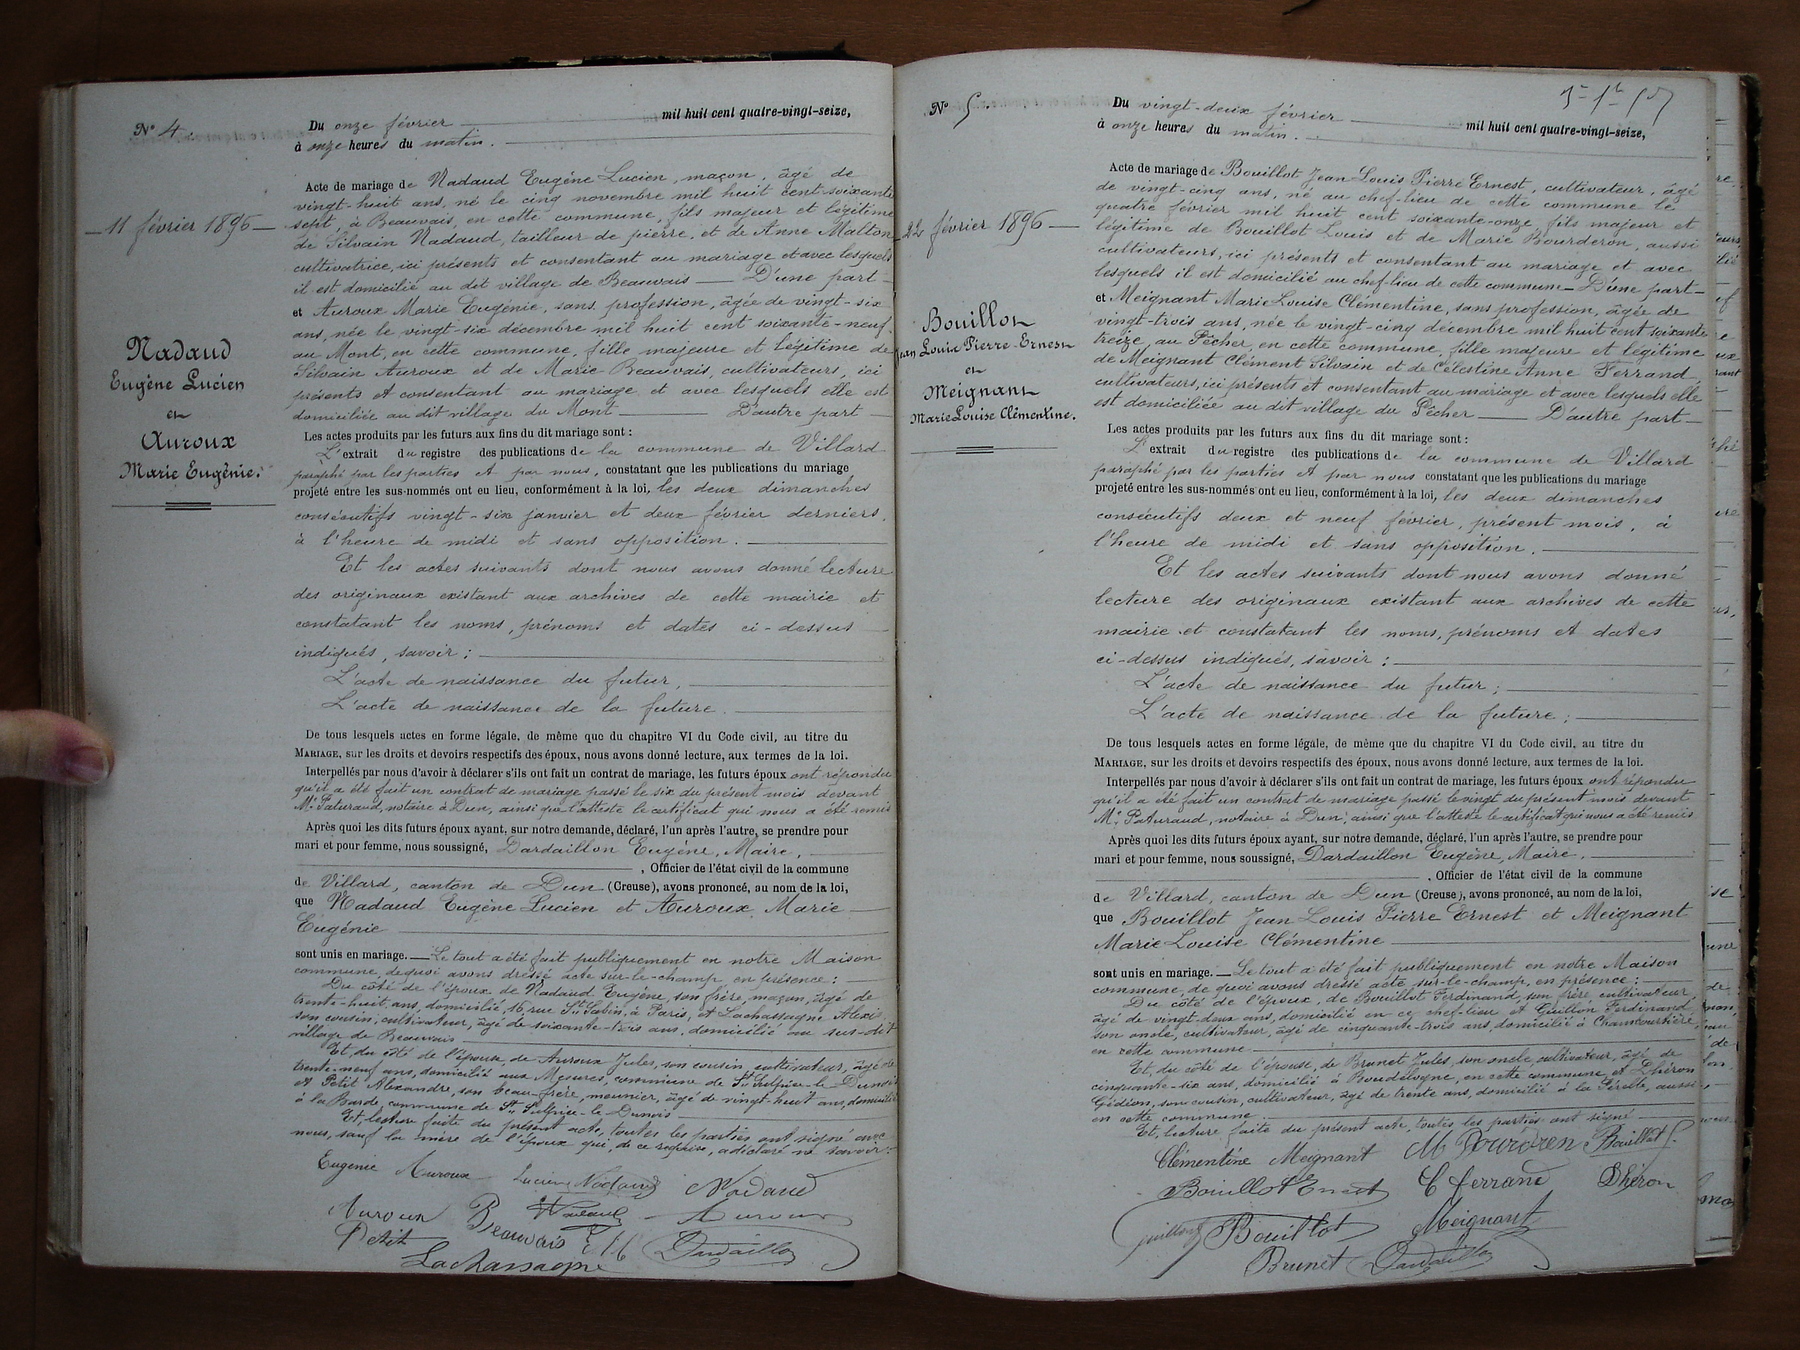 N° 4.
11 février 1896
Nadaud
Eugène Lucien
et
Auroux
Marie Eugénie.
Du onze février mil huit cent quatre-vingt-seize,
à onze heures du matin.
Acte de mariage de Nadaud Eugène Lucien, maçon, âgé de
vingt-huit ans, né le cinq novembre mil huit cent soixante
sept, à Beauvais, en cette commune, fils majeur et légitime
de Silvain Nadaud, tailleur de pierre, et de Anne Malton
cultivatrice, ici présents et consentant au mariage et avec lesquels
il est domicilié au dit village de Beauvais — D'une part —
et Auroux Marie Eugénie, sans profession, âgée de vingt-six
ans, née le vingt-six décembre mil huit cent soixante-neuf
au Mont, en cette commune, fille majeure et légitime de
Silvain Auroux et de Marie Beauvais, cultivateurs, ici
présents et consentant au mariage et avec lesquels elle est
domiciliée au dit village du Mont — D'autre part —
Les actes produits par les futurs aux fins du dit mariage sont :
L'extrait du registre des publications de la commune de Villard
paraphé par les parties et par nous, constatant que les publications du mariage
projeté entre les sus-nommés ont eu lieu, conformément à la loi, les deux dimanches
consécutifs vingt-six janvier et deux février derniers,
à l'heure de midi et sans opposition.
Et les actes suivants dont nous avons donné lecture
des originaux existant aux archives de cette mairie et
constatant les noms, prénoms et dates ci-dessus
indiqués, savoir :
L'acte de naissance du futur,
L'acte de naissance de la future.
De tous lesquels actes en forme légale, de même que du chapitre VI du Code civil, au titre du
MARIAGE, sur les droits et devoirs respectifs des époux, nous avons donné lecture, aux termes de la loi.
Interpellés par nous d'avoir à déclarer s'ils ont fait un contrat de mariage, les futurs époux ont répondu
qu'il a été fait un contrat de mariage passé le six du présent mois devant
Me Paturaud, notaire à Dun, ainsi que l'atteste le certificat qui nous a été remis
Après quoi les dits futurs époux ayant, sur notre demande, déclaré, l'un après l'autre, se prendre pour
mari et pour femme, nous soussigné, Dardaillon Eugène, Maire,
, Officier de l'état civil de la commune
de Villard, canton de Dun (Creuse), avons prononcé, au nom de la loi,
que Nadaud Eugène Lucien et Auroux Marie
Eugénie
sont unis en mariage. — Le tout a été fait publiquement en notre Maison
commune, de quoi avons dressé acte sur-le-champ en présence :
Du côté de l'époux de Nadaud Eugène, son frère, maçon, âgé de
trente-huit ans, domicilié, 16 rue St Sabin, à Paris, et Lachassagne Alexis
son cousin, cultivateur, âgé de soixante-trois ans, domicilié au sus-dit
village de Beauvais
Et, du côté de l'épouse, de Auroux Jules, son cousin cultivateur, âgé de
trente-neuf ans, domicilié aux Mesures, commune de St Sulpice-le-Dunois
et Petit Alexandre, son beau-frère, meunier, âgé de vingt-huit ans, domicilié
à la Barde commune de St Sulpice-le-Dunois
Et, lecture faite du présent acte, toutes les parties ont signé avec
nous, sauf la mère de l'époux qui, de ce requise, a déclaré ne savoir.
Eugénie Auroux Lucien Nadaud Nadaud
Auroux Beauvais Nadaud Auroux
Petit Dardaillon
Lachassagne
N° 5.
22 février 1896
Bouillot
Jean Louis Pierre Ernest
et
Meignant
Marie Louise Clémentine.
Du vingt-deux février mil huit cent quatre-vingt-seize,
à onze heures du matin.
Acte de mariage de Bouillot Jean Louis Pierre Ernest, cultivateur, âgé
de vingt-cinq ans, né au chef-lieu de cette commune le
quatre février mil huit cent soixante-onze, fils majeur et
légitime de Bouillot Louis et de Marie Bourderon, aussi
cultivateurs, ici présents et consentant au mariage et avec
lesquels il est domicilié au chef-lieu de cette commune — D'une part —
et Meignant Marie Louise Clémentine, sans profession, âgée de
vingt-trois ans, née le vingt-cinq décembre mil huit cent soixante
treize, au Pêcher, en cette commune, fille majeure et légitime
de Meignant Clément Silvain et de Célestine Anne Ferrand
cultivateurs, ici présents et consentant au mariage et avec lesquels elle
est domiciliée au dit village du Pêcher — D'autre part —
Les actes produits par les futurs aux fins du dit mariage sont :
L'extrait du registre des publications de la commune de Villard
paraphé par les parties et par nous constatant que les publications du mariage
projeté entre les sus-nommés ont eu lieu, conformément à la loi, les deux dimanches
consécutifs deux et neuf février, présent mois, à
l'heure de midi et sans opposition.
Et les actes suivants dont nous avons donné
lecture des originaux existant aux archives de cette
mairie et constatant les noms, prénoms et dates
ci-dessus indiqués, savoir :
L'acte de naissance du futur ;
L'acte de naissance de la future ;
De tous lesquels actes en forme légale, de même que du chapitre VI du Code civil, au titre du
MARIAGE, sur les droits et devoirs respectifs des époux, nous avons donné lecture, aux termes de la loi.
Interpellés par nous d'avoir à déclarer s'ils ont fait un contrat de mariage, les futurs époux ont répondu
qu'il a été fait un contrat de mariage passé le vingt du présent mois devant
Me Paturaud, notaire à Dun, ainsi que l'atteste le certificat qui nous a été remis
Après quoi les dits futurs époux ayant, sur notre demande, déclaré, l'un après l'autre, se prendre pour
mari et pour femme, nous soussigné, Dardaillon Eugène, Maire,
, Officier de l'état civil de la commune
de Villard, canton de Dun (Creuse), avons prononcé, au nom de la loi,
que Bouillot Jean Louis Pierre Ernest et Meignant
Marie Louise Clémentine
sont unis en mariage. — Le tout a été fait publiquement en notre Maison
commune, de quoi avons dressé acte sur-le-champ, en présence :
Du côté de l'époux, de Bouillot Ferdinand, son frère cultivateur,
âgé de vingt-deux ans, domicilié en ce chef-lieu et Guillon Ferdinand,
son oncle, cultivateur, âgé de cinquante-trois ans, domicilié à
en cette commune
Et, du côté de l'épouse, de Brunet Jules, son oncle, cultivateur, âgé de
cinquante-six ans, domicilié à en cette commune, et Dhéron
Gédion, son cousin, cultivateur, âgé de trente ans, domicilié à la aussi
en cette commune
Et, lecture faite du présent acte, toutes les parties ont signé
Clémentine Meignant M Bourderon Bouillot F.
Bouillot Ernest C Ferrand Dhéron
Bouillot Meignant
Brunet Dardaillon